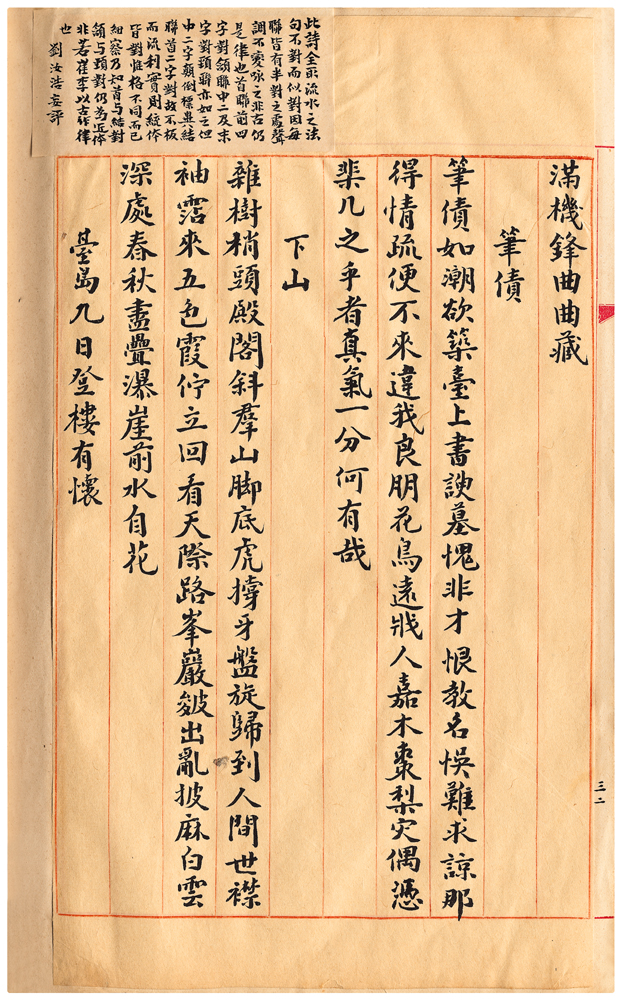 滿機鋒曲曲藏
筆債
筆債如潮欲築臺上書諛墓愧非才恨教名悞難求諒那
得情疏便不來違我良朋花鳥遠戕人嘉木棗梨灾偶憑
棐几之乎者真氣一分何有哉
下山
雜樹梢頭殿閣斜羣山脚底虎撐牙盤旋歸到人間世襟
袖霑來五色霞佇立回看天際路峯巖皴出亂披麻白雲
深處春秋盡疊瀑崖前水自花
臺島九日登樓有懷
三二
此詩全取流水之法
句不對而似對因每
聯皆有半對之處聲
調不變咏之非古仍
是律也首聯前四
字對頷聯中二及末
字對頸聯亦如之但
中二字顛倒標異結
聯首二字對故不板
而流利實則紋体
皆對惟格不同而已
細察乃知首与結對
頷与頸對仍為近体
非若崔李以古作律
也 劉汝浩妄評